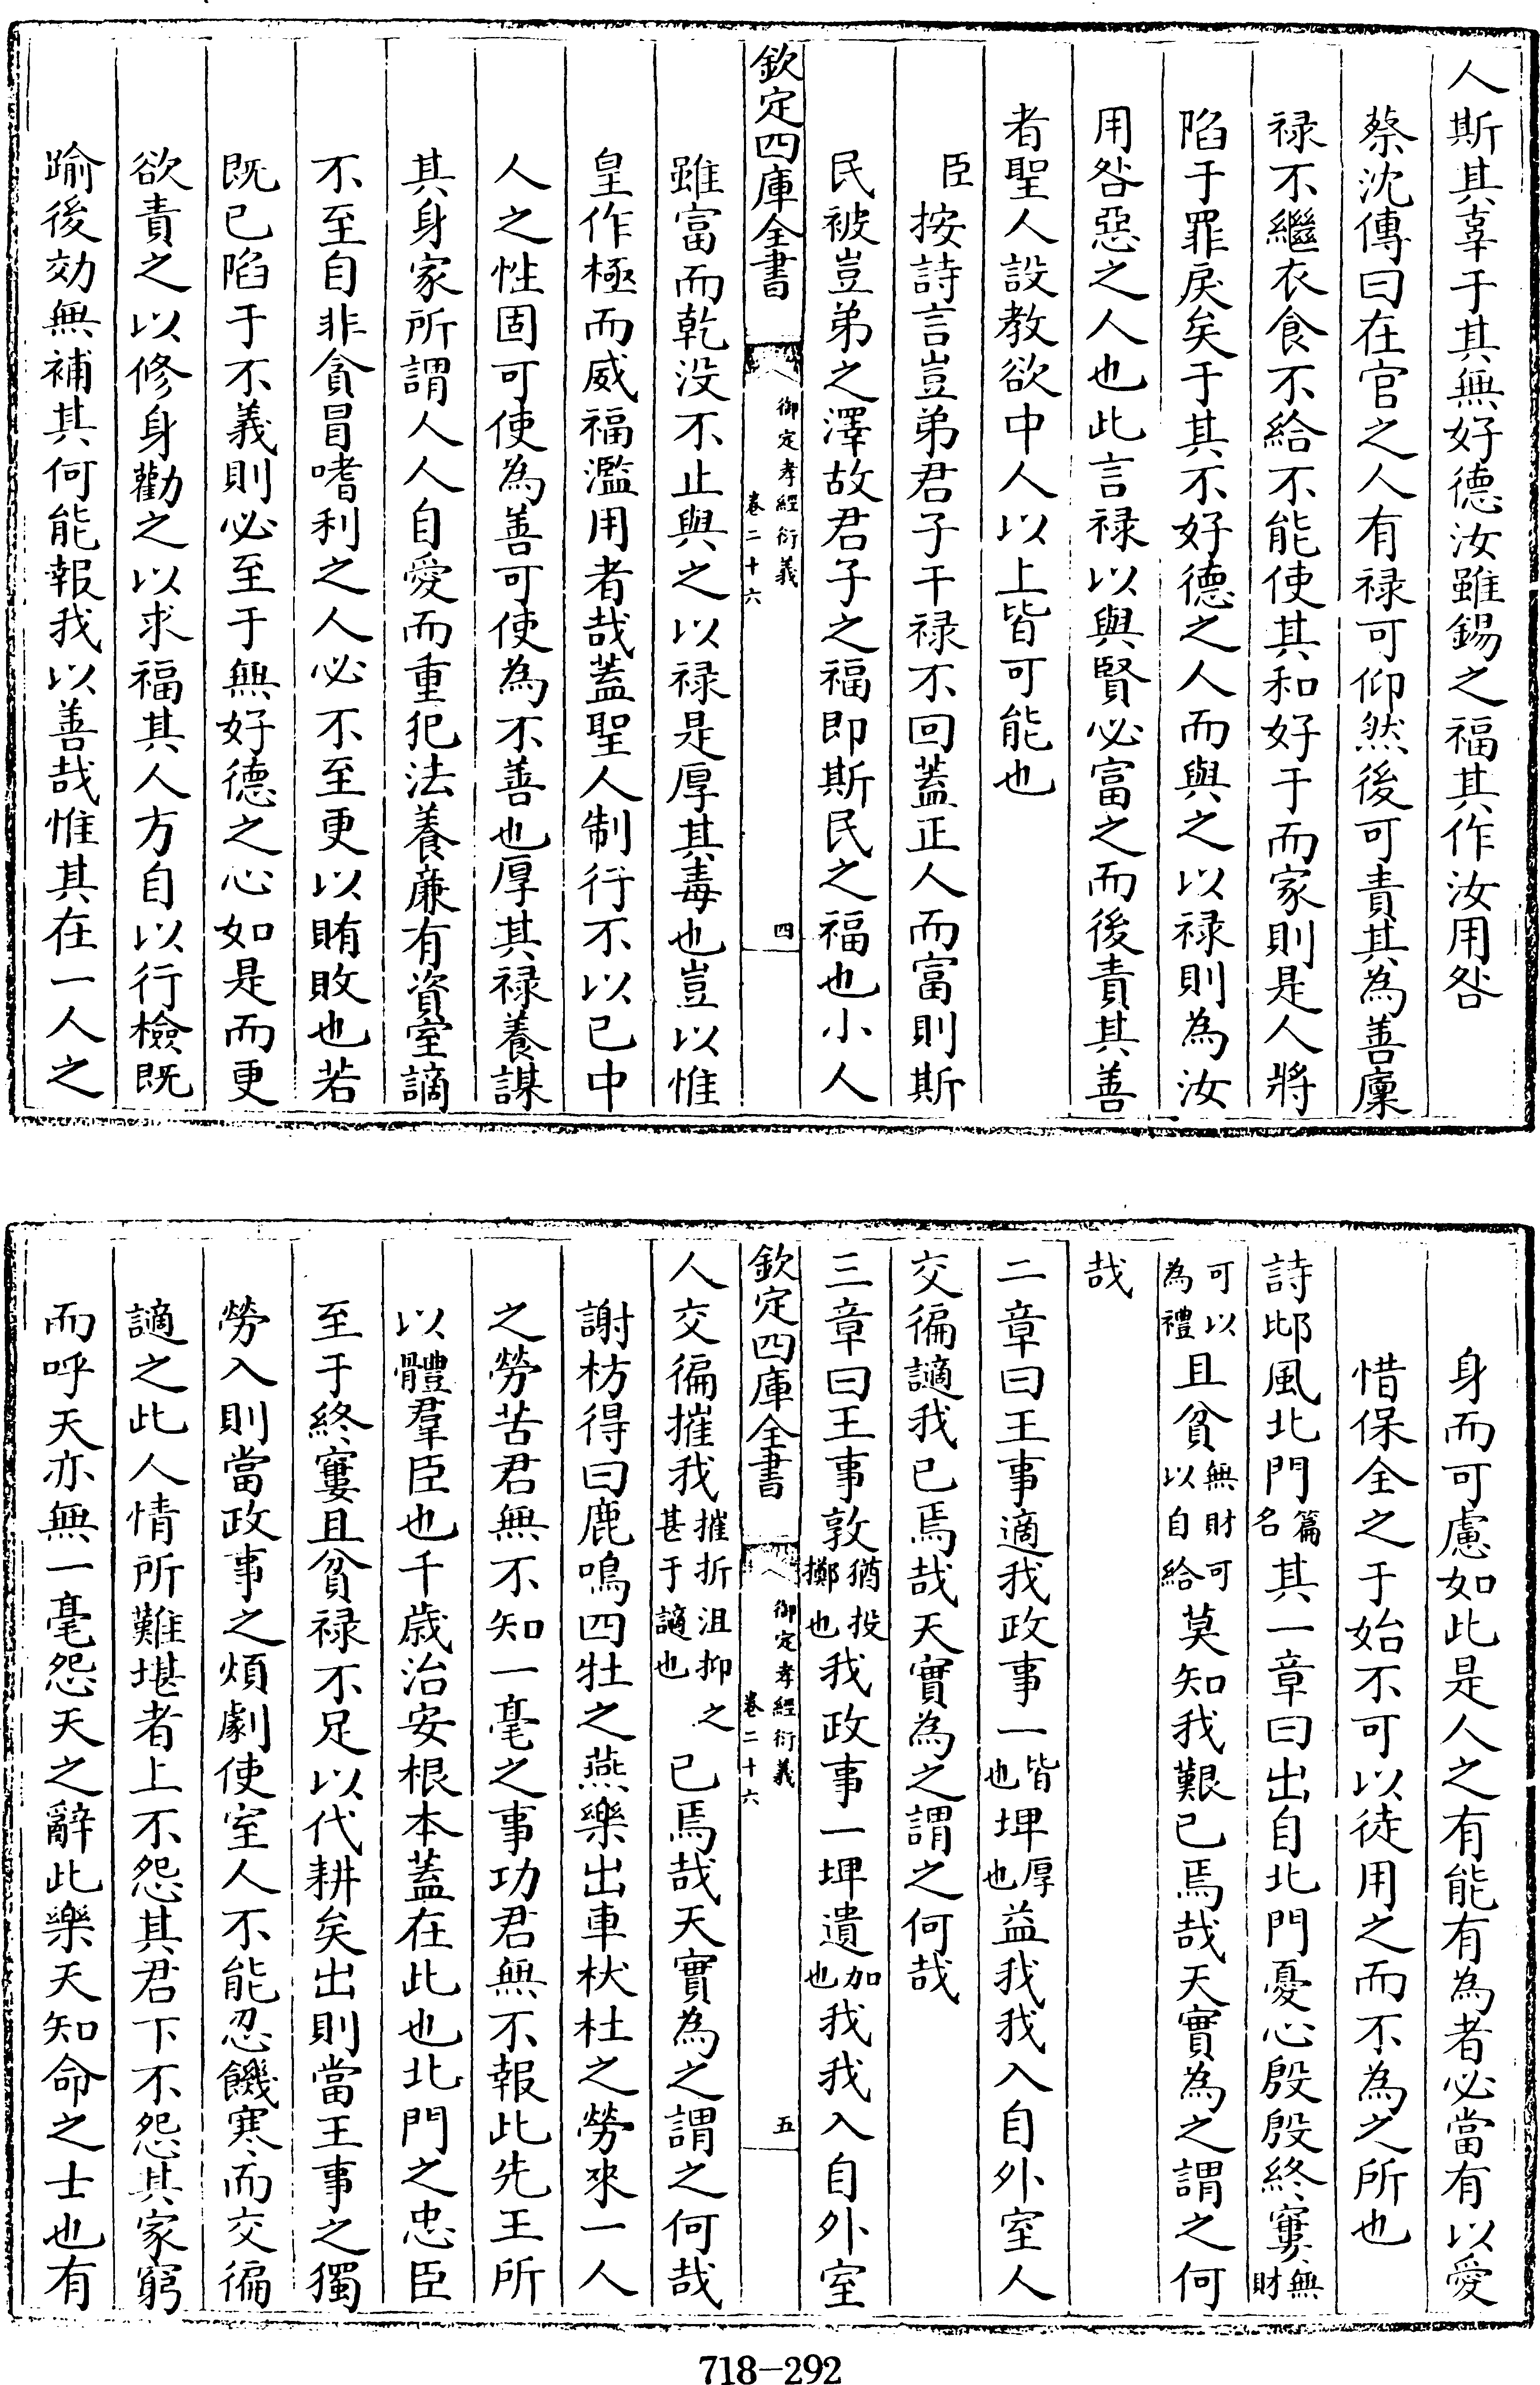 人斯其辜于其無好德汝雖錫之福其作汝用咎
蔡沈傳曰在官之人有禄可仰然後可責其為善廩
禄不繼衣食不給不能使其和好于而家則是人將
陷于罪戾矣于其不好德之人而與之以禄則為汝
用咎惡之人也此言禄以與賢必富之而後責其善
者聖人設教欲中人以上皆可能也
臣按詩言豈弟君子干禄不回蓋正人而富則斯
民被豈弟之澤故君子之福即斯民之福也小人
欽定四庫全書
御定孝經衍義
卷二十六
四
雖富而乾没不止與之以禄是厚其毒也豈以惟
皇作極而威福濫用者哉蓋聖人制行不以已中
人之性固可使為善可使為不善也厚其禄養謀
其身家所謂人人自愛而重犯法養亷有資室謫
不至自非貪冒嗜利之人必不至更以賄敗也若
既已陷于不義則必至于無好德之心如是而更
欲責之以修身勸之以求福其人方自以行檢既
踰後効無補其何能報我以善哉惟其在一人之
身而可慮如此是人之有能有為者必當有以愛
惜保全之于始不可以徒用之而不為之所也
詩邶風北門篇名其一章曰出自北門憂心殷殷終窶無財
可以為禮且貧無財可可以自給莫知我艱已焉哉天實為之謂之何
哉
二章曰王事適我政事一皆也埤厚也益我我入自外室人
交徧讁我已焉哉天實為之謂之何哉
三章曰王事敦猶投擲也我政事一埤遺加也我我入自外室
欽定四庫全書
御定孝經衍義
卷二十六
五
人交徧摧我摧折沮抑之甚于讁也已焉哉天實為之謂之何哉
謝枋得曰鹿鳴四牡之燕樂出車杕杜之勞來一人
之勞苦君無不知一毫之事功君無不報此先王所
以體羣臣也千歳治安根本蓋在此也北門之忠臣
至于終窶且貧禄不足以代耕矣出則當王事之獨
勞入則當政事之煩劇使室人不能忍饑寒而交徧
讁之此人情所難堪者上不怨其君下不怨其家窮
而呼天亦無一毫怨天之辭此樂天知命之士也有
718-292